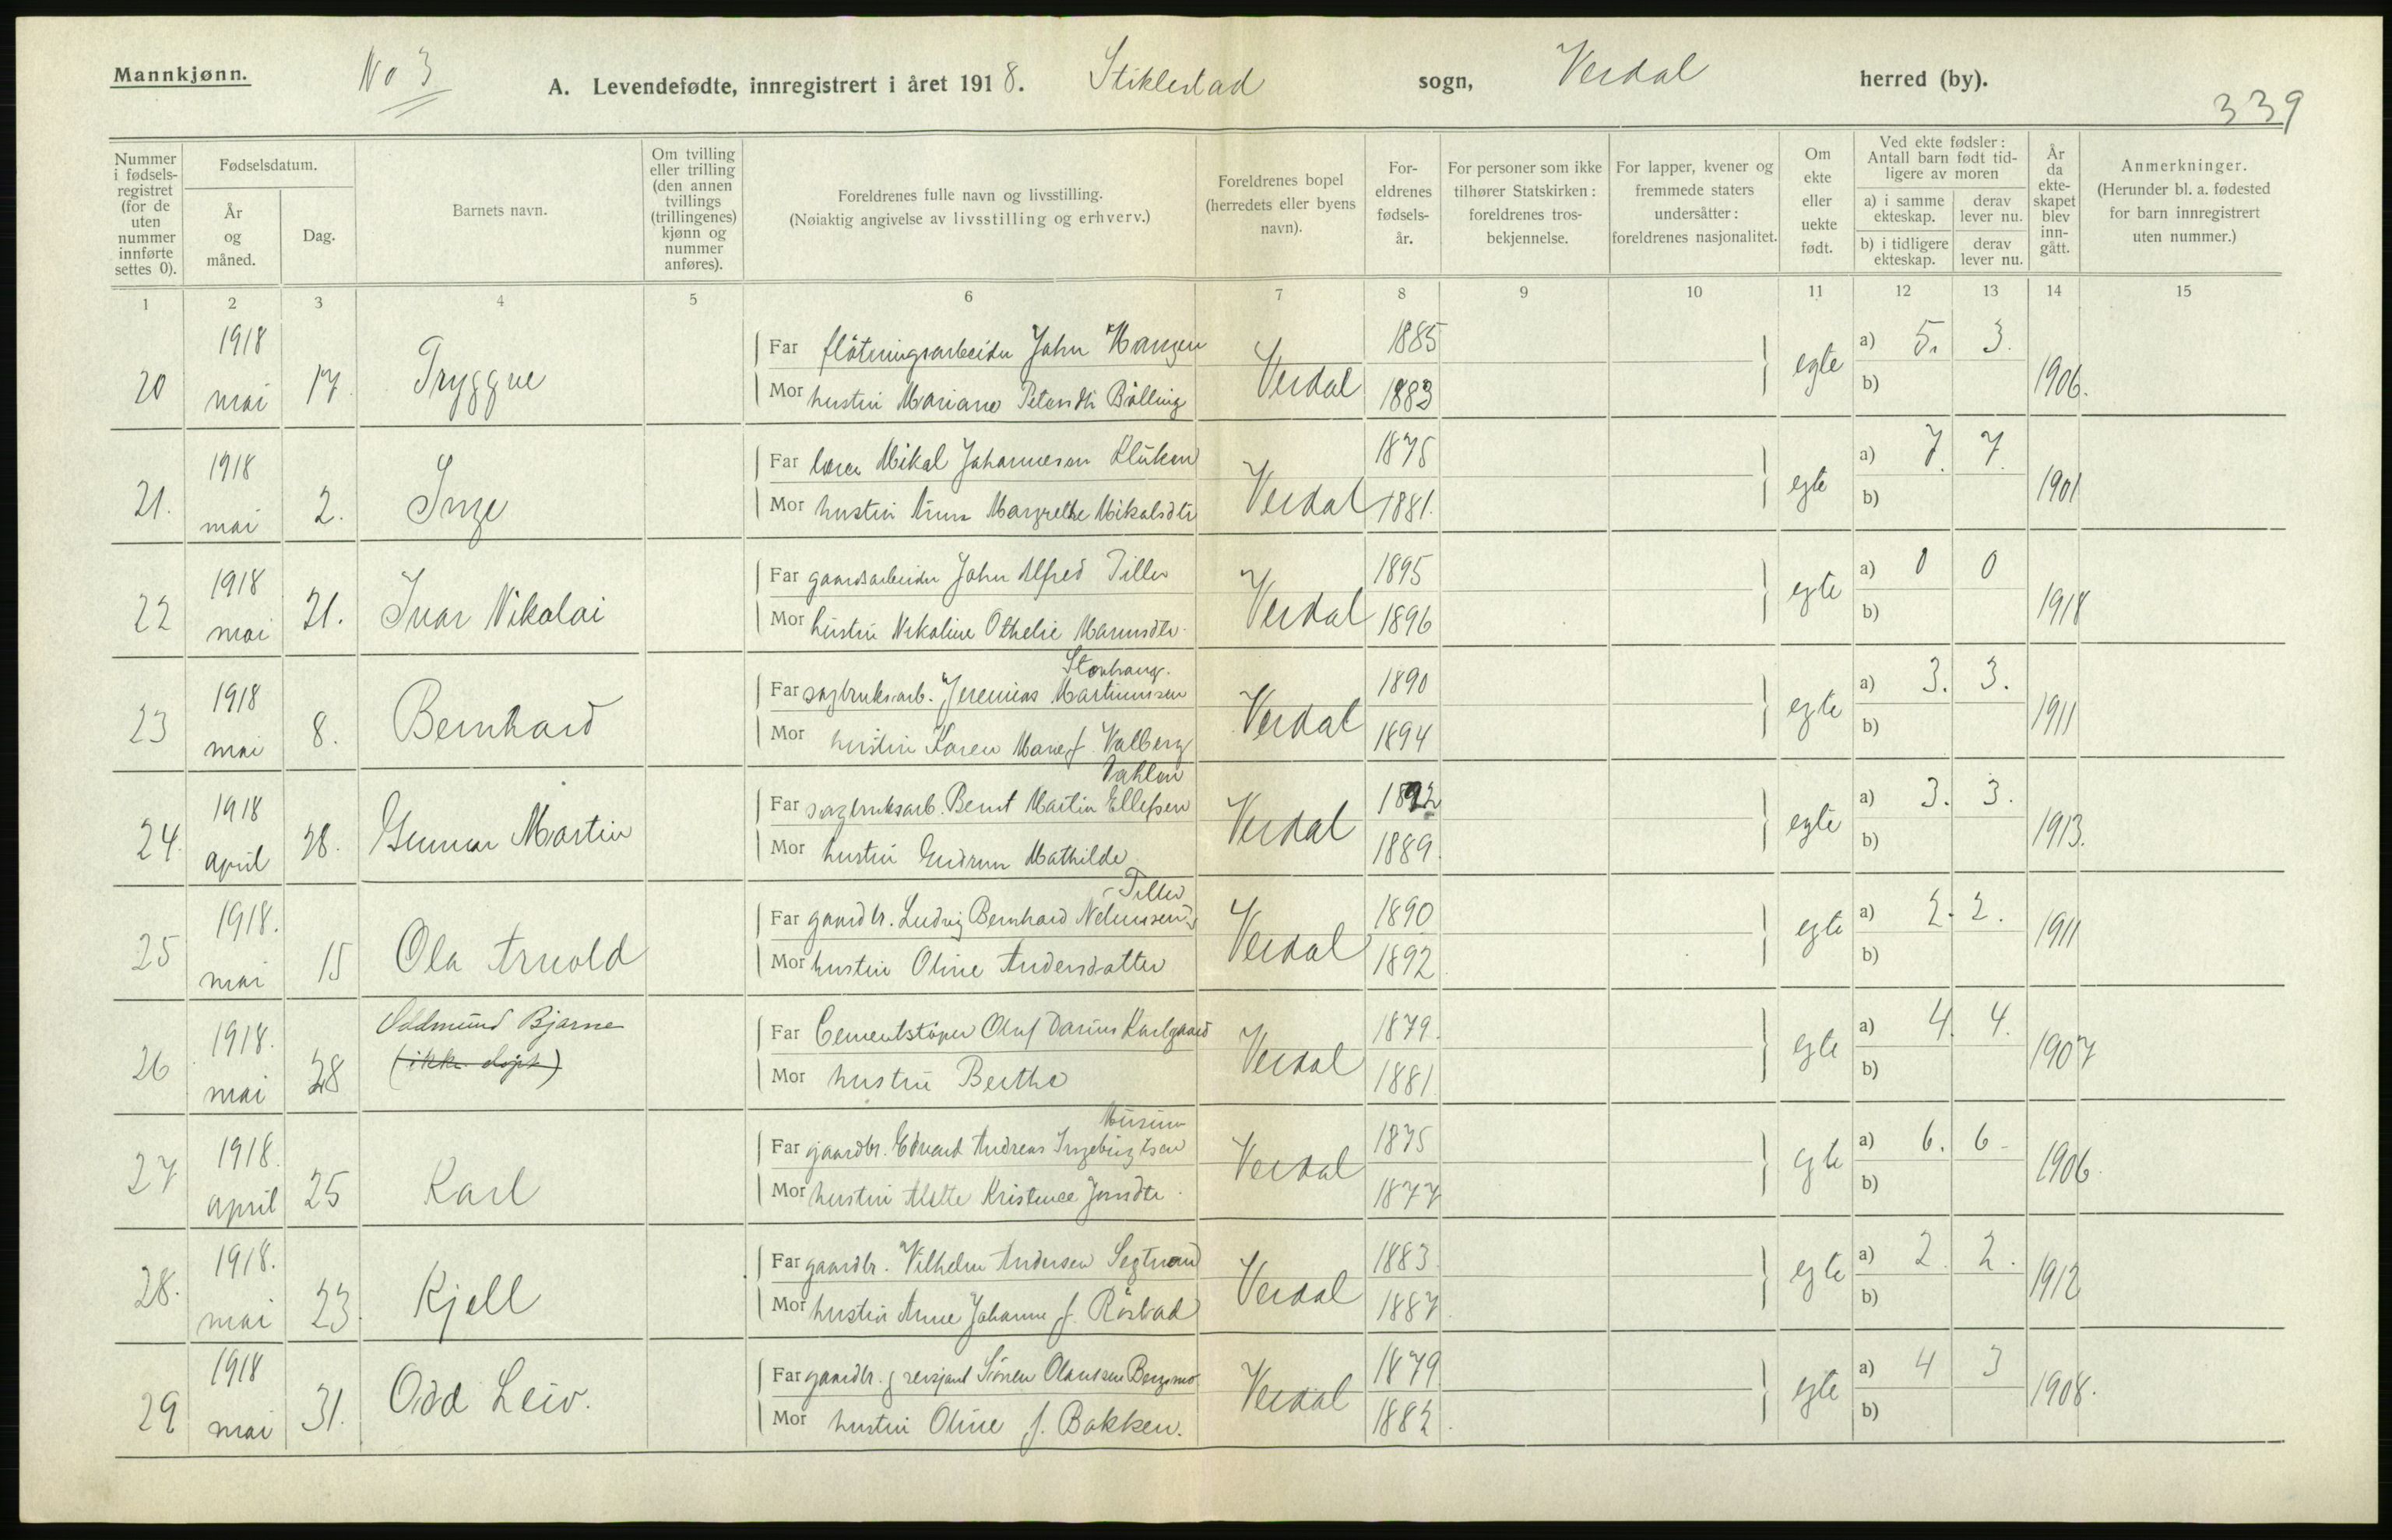 Mannkjønn.
No 3
A. Levendefødte, innregistrert i året 1918. Stiklestad sogn, Verdal herred (by).
339
Nummer i fødsels-registret (for de uten nummer innførte settes 0).
Fødselsdatum.
År og måned.
Dag.
Barnets navn.
Om tvilling eller trilling (den annen tvillings (trillingenes) kjønn og nummer anføres).
Foreldrenes fulle navn og livsstilling.
(Nøiaktig angivelse av livsstilling og erhverv.)
Foreldrenes bopel (herredets eller byens navn).
For-eldrenes fødsels-år.
For personer som ikke tilhører Statskirken: foreldrenes tros-bekjennelse.
For lapper, kvener og fremmede staters undersåtter: foreldrenes nasjonalitet.
Om ekte eller uekte født.
Ved ekte fødsler: Antall barn født tid-ligere av moren
a) i samme ekteskap.
derav lever nu.
b) i tidligere ekteskap.
derav lever nu.
År da ekte-skapet blev inn-gått.
Anmerkninger.
(Herunder bl. a. fødested for barn innregistrert uten nummer.)
1 2 3 4 5 6 7 8 9 10 11 12 13 14 15
20 1918 mai 17. Tryggve
Far flötningsarbeider John Hansen 1885
Mor hustru Mariane Petersdtr Bälling 1883
Verdal egte a) 5. 3. b) 1906.
21. 1918 mai 2. Inge
Far lærer Mikal Johannesen Klüken 1875
Mor hustru Anna Margrethe Mikalsdtr 1881.
Verdal egte a) 7. 7. b) 1901
22 1918 mai 21. Ivar Nikolai
Far gaardsarbeider John Alfred Tiller 1895
Mor hustru Nikoline Othelie Mariusdtr. 1896
Verdal egte a) 0 0 b) 1918
23 1918 mai 8. Bernhard
Storhaug.
Far sagbruksarb. Jeremias Martinussen 1890
Mor hustru Karen Marie f. Valberg 1894
Verdal egte a) 3. 3. b) 1911
24. 1918 april 28. Gunnar Martin
Dahlen
Far sagbruksarb. Bernt Martin Ellefsen 1892
Mor hustru Gudrun Mathilde 1889.
Verdal egte a) 3. 3. b) 1913.
25 1918. mai 15 Ola Arnold
Tiller
Far gaardbr. Ludvig Bernhard 1890
Mor hustru Oline Andersdatter 1892
Verdal egte a) 2. 2. b) 1911
26 1918. mai 28 Oddmund Bjarne
(ikke döpt)
Far Cementstöper Oluf Darius Karlgaard 1879.
Mor hustru Berthe 1881
Verdal egte a) 4. 4. b) 1907
27 1918. april 25 Karl
Musum
Far gaardbr. Edvard Andreas Ingebrigtsen 1875
Mor hustru Mette Kristense Jonsdtr. 1877
Verdal egte a) 6. 6 b) 1906.
28. 1918. mai 23. Kjell
Far gaardbr. Vilhelm Andersen Segtnan 1883
Mor hustru Anne Johanne f. Röstad 1887.
Verdal egte a) 2 2. b) 1912
29 1918 mai 31. Odd Leiv.
Far gaardbr. g sersjant Sören Olausen Bergsmo 1879
Mor hustru Oline f. Bakken. 1882.
Verdal egte a) 4 3 b) 1908.